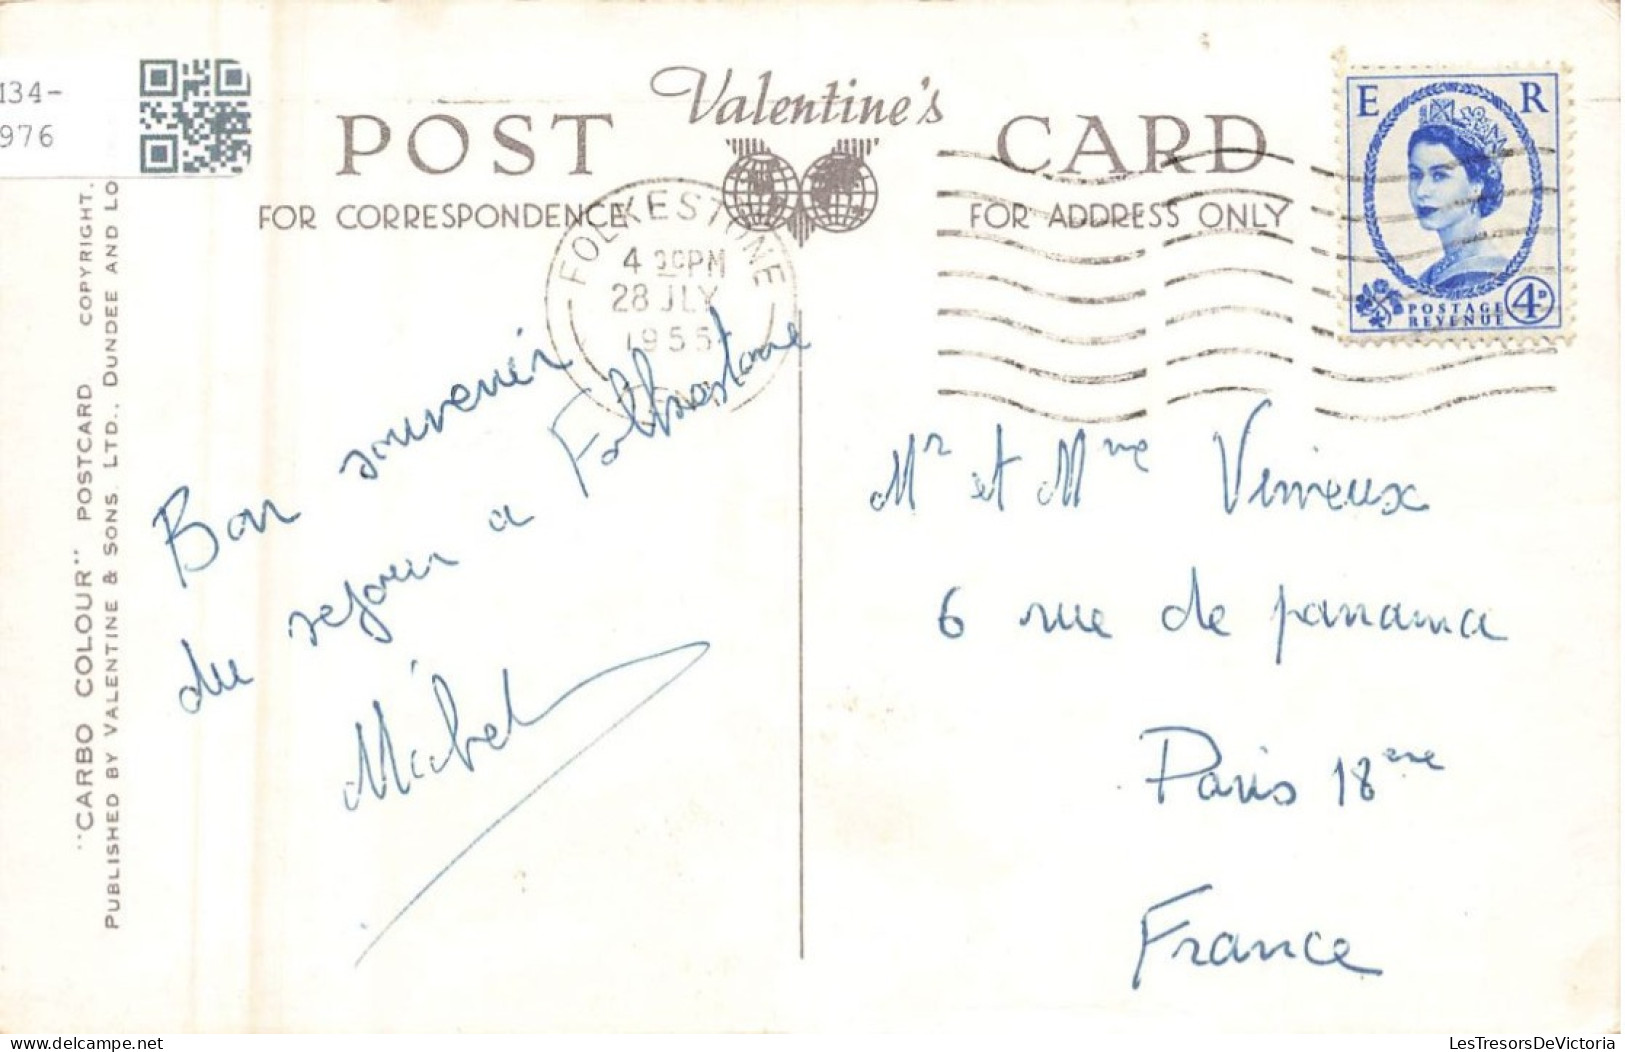 134-
976
Valentine's
POST CARD
FOR CORRESPONDENCE
FOR ADDRESS ONLY
E R
POSTAGE
REVENUE
4D
FOLKESTONE
4 PM
28 JLY
1955
Bon souvenir
du sejour a Folkestone
Michel
Mr et Mme
6 rue de panama
Paris 18ème
France
"CARBO COLOUR" POSTCARD COPYRIGHT.
PUBLISHED BY VALENTINE & SONS. LTD., DUNDEE AND LO
delcampe.net
LesTresorsDeVictoria